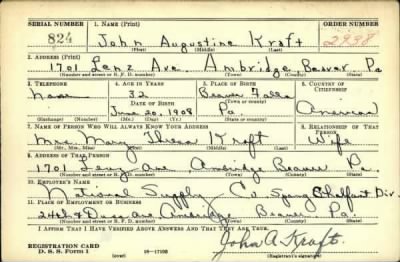 SERIAL NUMBER 1. NAME (Print) ORDER NUMBER
824 John Augustine Kraft 2998
(First) (Middle) (Last)
2. ADDRESS (Print)
1701 Lenz Ave. Ambridge Beaver Pa
(Number and street or R. F. D. number) (Town) (County) (State)
3. TELEPHONE 4. AGE IN YEARS 5. PLACE OF BIRTH 6. COUNTRY OF CITIZENSHIP
None 32 Beaver Falls
DATE OF BIRTH (Town or county)
June 20, 1908 Pa. American
(Exchange) (Number) (Mo.) (Day) (Yr.) (State or country)
7. NAME OF PERSON WHO WILL ALWAYS KNOW YOUR ADDRESS 8. RELATIONSHIP OF THAT PERSON
Mrs. Mary Kraft Wife
(Mr., Mrs., Miss) (First) (Middle) (Last)
9. ADDRESS OF THAT PERSON
1701 Ave Ambridge Beaver Pa.
(Number and street or R. F. D. number) (Town) (County) (State)
10. EMPLOYER'S NAME
National Supply Co. Spang Chalfant Div.
11. PLACE OF EMPLOYMENT OR BUSINESS
24th & Duss Ave Ambridge Beaver Pa.
(Number and street or R. F. D. number) (Town) (County) (State)
I AFFIRM THAT I HAVE VERIFIED ABOVE ANSWERS AND THAT THEY ARE TRUE.
REGISTRATION CARD
D. S. S. Form 1 16-17105 John A. Kraft
(Registrant's signature)